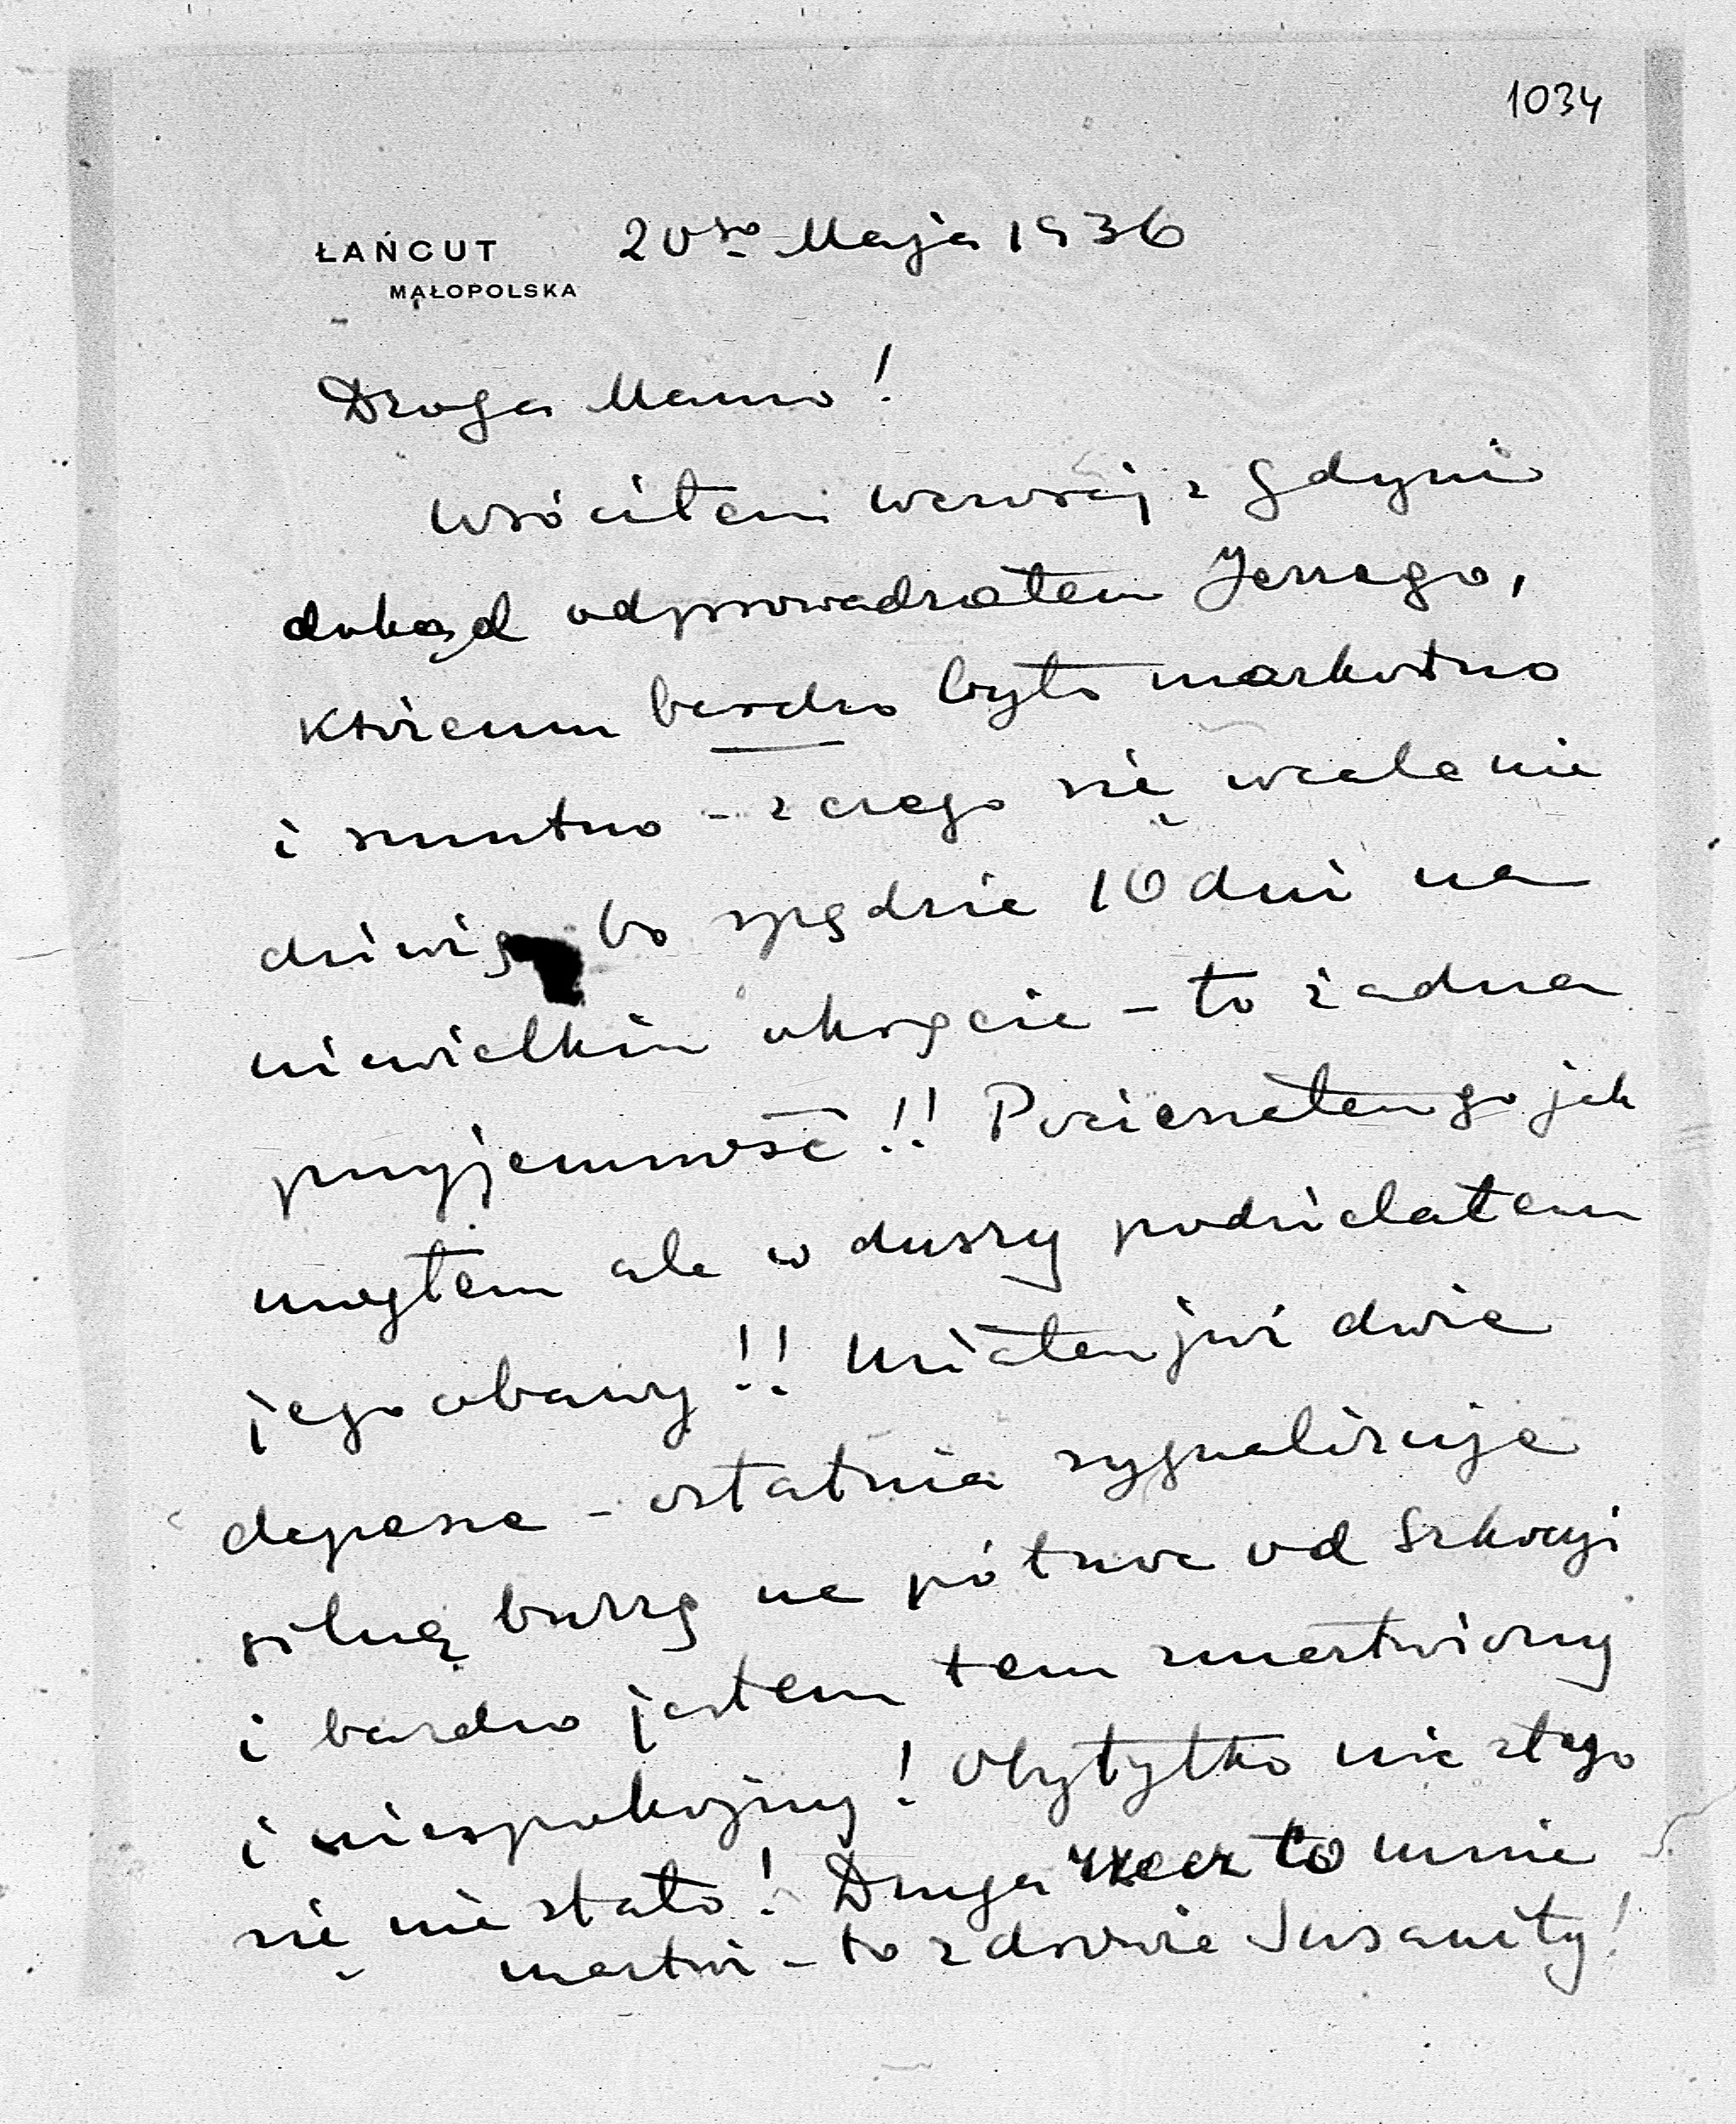 1034
ŁAŃCUT 20go Maja 1936
MAŁOPOLSKA
Droga Mamo!
Wróciłem wczoraj z Gdyni
dokąd odprowadzałem Jerzego,
któremu bardzo było markotno
i smutno - z czego się wcale nie
dziwię bo spędzić 10 dni na
niewielkim okręcie - to żadna
przyjemność!! Pocieszałem go jak
mogłem ale w duszy podzielałem
jego obawy!! Miałem już dwie
depesze - ostatnia sygnalizuje
silną burzę na północ od Szkocyi
i bardzo jestem tem zmartwiony
i niespokojny! Oby tylko nic złego
się nie stało! Druga rzecz co mnie
martwi - to zdrowie Susanity!